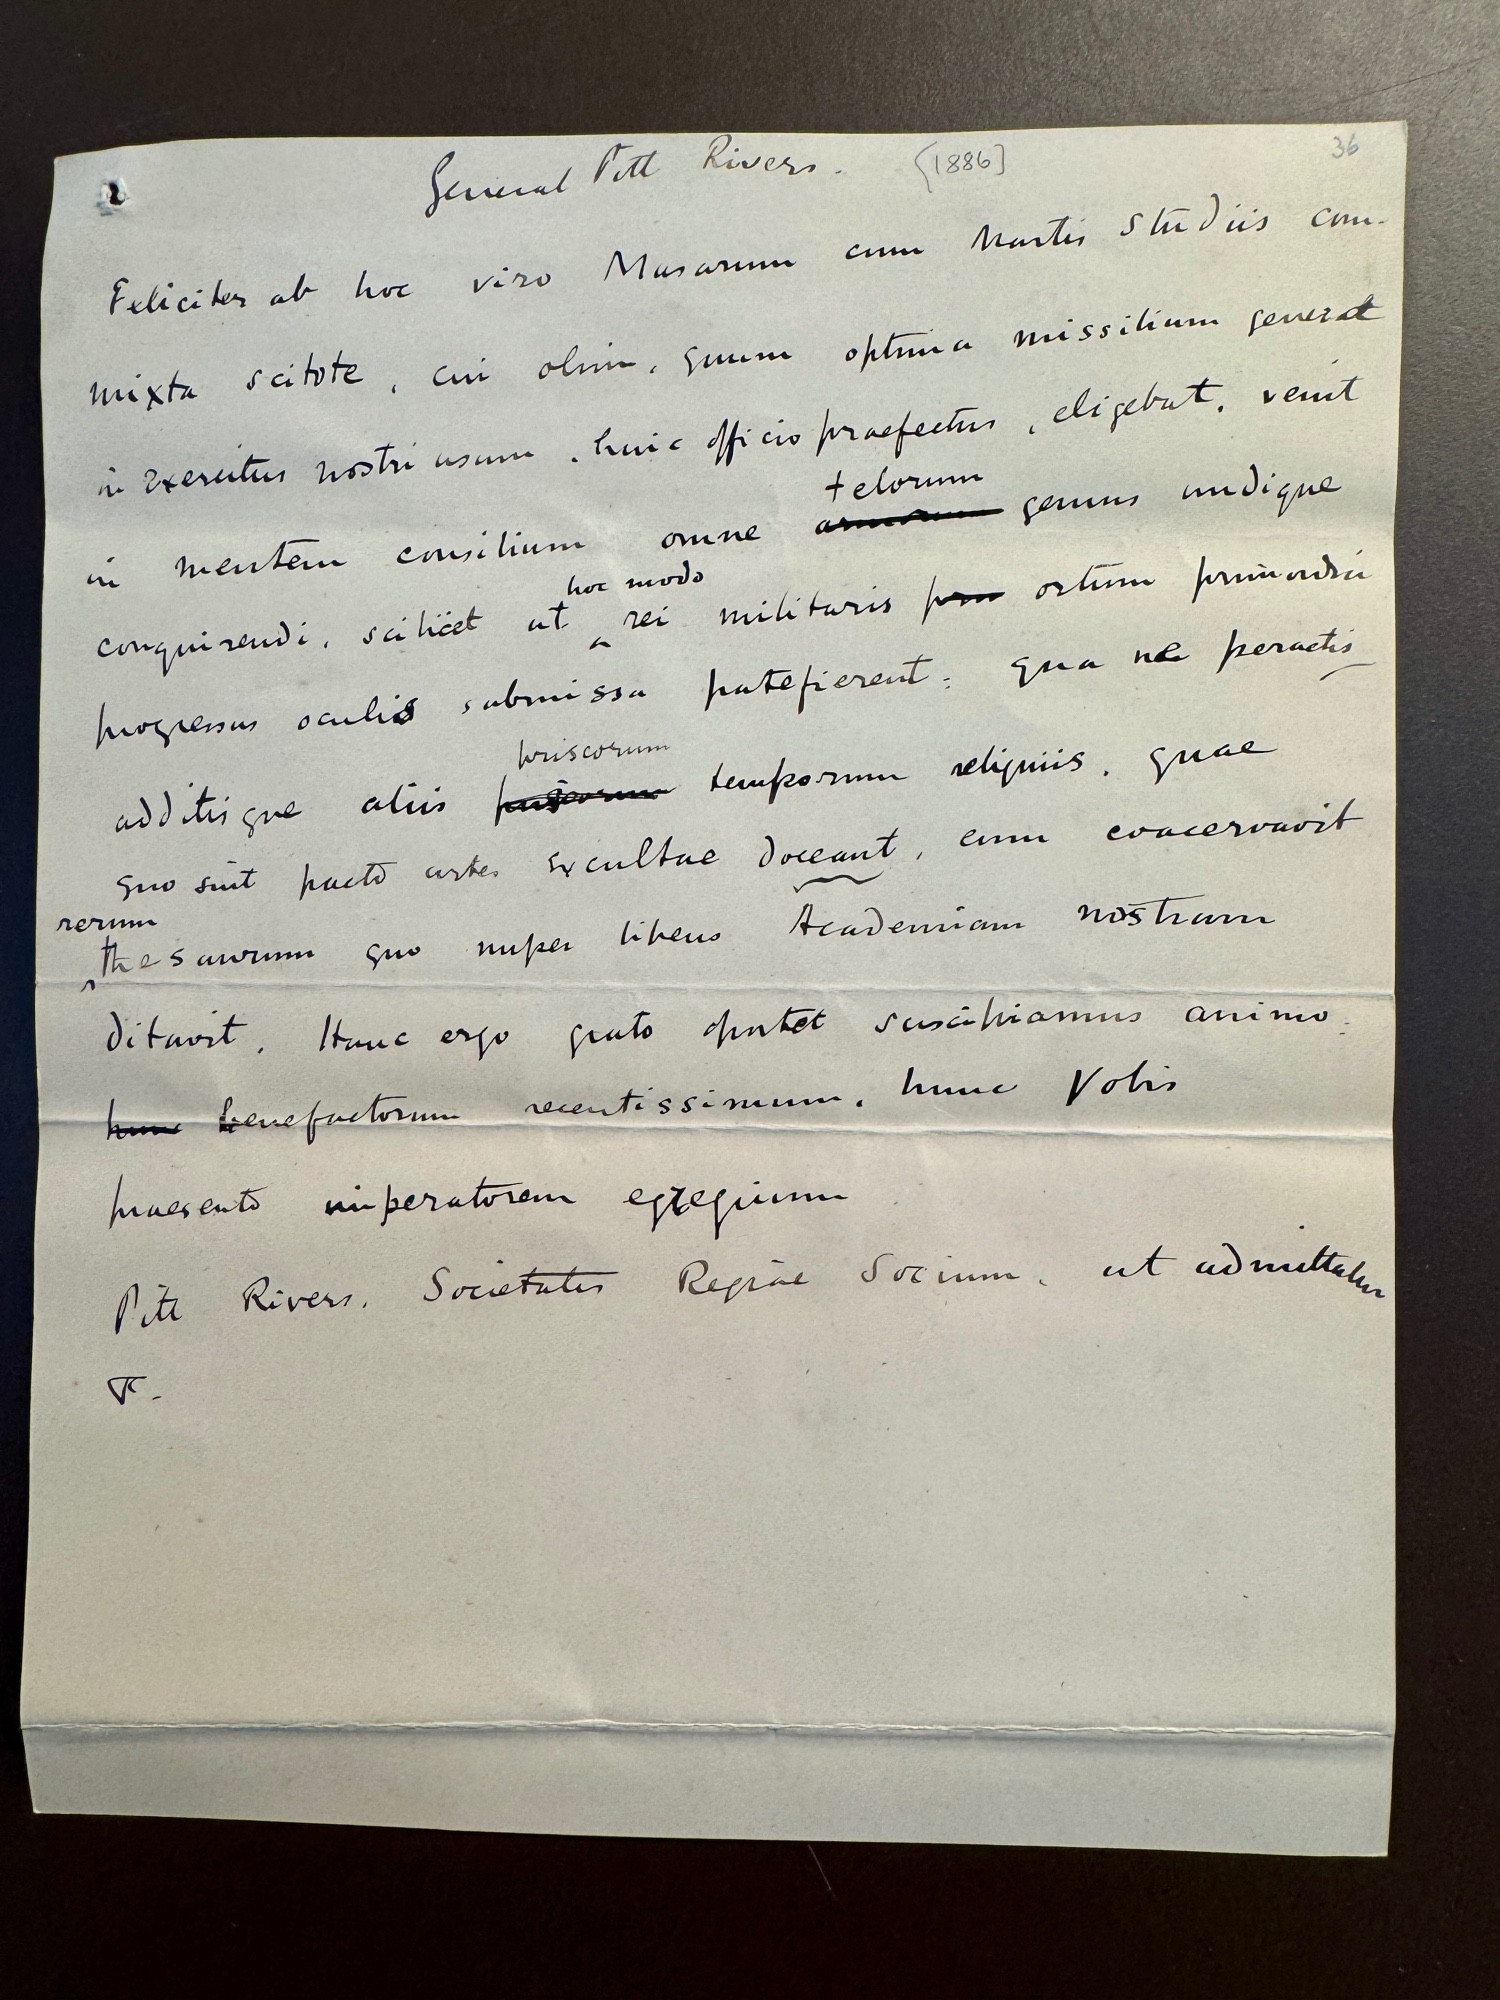 General Pitt Rivers. [1886] 36
Feliciter ab hoc viro Musarum cum Martis studiis com-
mixta scitote, cui olim, quum optima missilium genera
in exercitus nostri usum, huic officio praefectus, eligebat, venit
telorum
in mentem consilium omne armorum genus undique
hoc modo
conquirendi, scilicet ut rei militaris ortum primordia
progressus oculis submissa patefierent: qua re peractis
priscorum
additisque aliis priscorum temporum reliquiis, quae
quo sint pacto artes excultae doceant, eum coacervavit
rerum
thesaurum quo nuper libens Academiam nostram
ditavit. Hunc ergo grato oportet suscipiamus animo:
hunc benefactorum recentissimum, hunc Vobis
praesento imperatorem egregium
Pitt Rivers, Societatis Regiae Socium, ut admittatur